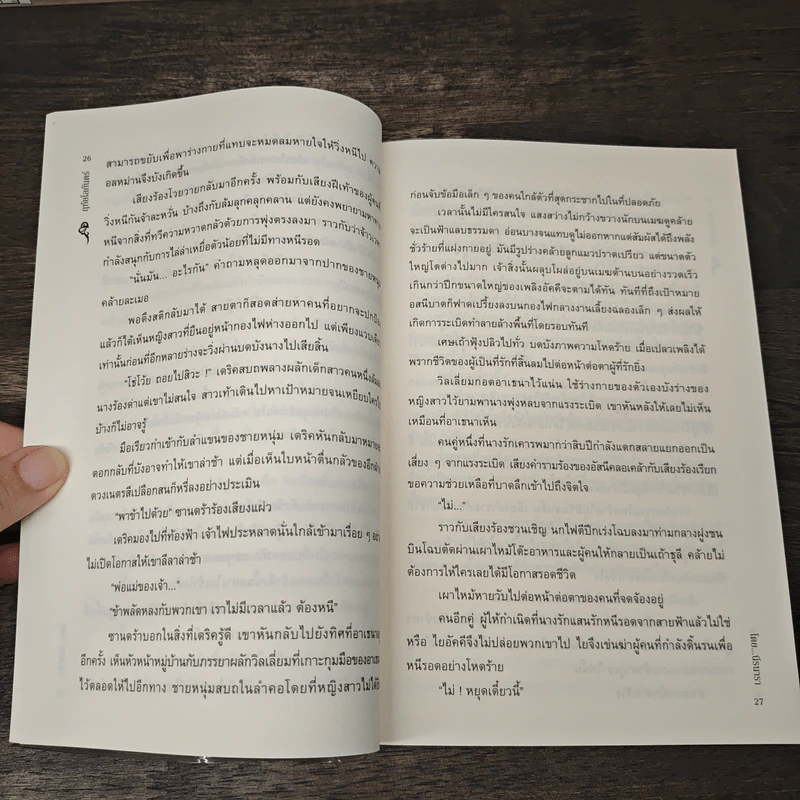 26
ฤทัยไอกันตร์
สามารถขยับเพื่อพาร่างกายที่แทบจะหมดลมหายใจให้วิ่งหนีไป ความ
อลหม่านจึงบังเกิดขึ้น
เสียงร้องโวยวายกลับมาอีกครั้ง พร้อมกับเสียงฝีเท้าของผู้คน
วิ่งหนีกันจ้าละหวั่น บ้างถึงกับล้มลุกคลุกคลาน แต่ยังคงพยายาม
หนีจากสิ่งที่ทวีความหวาดกลัวด้วยการพุ่งตรงลงมา ราวกับว่า
กำลังสนุกกับการไล่ล่าเหยื่อตัวน้อยที่ไม่มีทางหนีรอด
“นั่นมัน... อะไรกัน” คำถามหลุดออกมาจากปากของชายหนุ่ม
คล้ายละเมอ
พอดึงสติกลับมาได้ สายตาก็สอดส่ายหาคนที่อยากจะปกป้อง
แล้วก็ได้เห็นหญิงสาวที่ยืนอยู่หน้ากองไฟห่างออกไป แต่เพียงแวบเดียว
เท่านั้นก่อนที่อีกหลายร่างจะวิ่งผ่านบดบังนางไปเสียสิ้น
“โธ่โว้ย ถอยไปสิวะ !” เดริคสบถพลางผลักเด็กสาวคนหนึ่งล้มลง
นางร้องด่าแต่เขาไม่สนใจ สาวเท้าเดินไปหาเป้าหมายจนเหยียบใคร
บ้างก็ไม่อาจรู้
มือเรียวกำเข้ากับลำแขนของชายหนุ่ม เดริคหันกลับมาหมาย
ตอกกลับที่บังอาจทำให้เขาล่าช้า แต่เมื่อเห็นใบหน้าตื่นกลัวของอีกฝ่าย
ดวงเนตรสีเปลือกสนก็หรี่ลงอย่างประเมิน
“พาข้าไปด้วย” ซานดร้าร้องเสียงแผ่ว
เดริคมองไปที่ท้องฟ้า เจ้าไฟประหลาดนั่นใกล้เข้ามาเรื่อย ๆ อย่าง
ไม่เปิดโอกาสให้เขาลีลาล่าช้า
“พ่อแม่ของเจ้า...”
“ข้าพลัดหลงกับพวกเขา เราไม่มีเวลาแล้ว ต้องหนี”
ซานดร้าบอกในสิ่งที่เดริครู้ดี เขาหันกลับไปยังทิศที่อาเธนา
อีกครั้ง เห็นหัวหน้าหมู่บ้านกับภรรยาผลักวิลเลี่ยมที่เกาะกุมมือของอาเธนา
ไว้ตลอดให้ไปอีกทาง ชายหนุ่มสบถในลำคอโดยที่หญิงสาวไม่ได้ยิน
ก่อนจับข้อมือเล็ก ๆ ของคนใกล้ตัวที่สุดกระชากไปในที่ปลอดภัย
เวลานั้นไม่มีใครสนใจ แสงสว่างไม่กว้างขวางนักบนเมฆดูคล้าย
จะเป็นฟ้าแลบธรรมดา อ่อนบางจนแทบดูไม่ออกหากแต่สัมผัสได้ถึงพลัง
ชั่วร้ายที่แฝงกายอยู่ มันมีรูปร่างคล้ายลูกแมวปราดเปรียว แต่ขนาดตัว
ใหญ่โตต่างไปมาก เจ้าสิ่งนั้นผลุบโผล่อยู่บนเมฆด้านบนอย่างรวดเร็ว
เกินกว่าปีกขนาดใหญ่ของเพลิงอัคคีจะตามได้ทัน ทันทีที่ถึงเป้าหมาย
อสนีบาตก็ฟาดเปรี้ยงลงบนกองไฟกลางงานเลี้ยงฉลองเล็ก ๆ ส่งผลให้
เกิดการระเบิดทำลายล้างพื้นที่โดยรอบทันที
เศษเถ้าฟุ้งปลิวไปทั่ว บดบังภาพความโหดร้าย เมื่อเปลวเพลิงได้
พรากชีวิตของผู้เป็นที่รักที่สิ้นลมไปต่อหน้าต่อตาผู้ที่รักยิ่ง
วิลเลี่ยมกอดอาเธนาไว้แน่น ใช้ร่างกายของตัวเองบังร่างของ
หญิงสาวไว้ยามพานางพุ่งหลบจากแรงระเบิด เขาหันหลังให้เลยไม่เห็น
เหมือนที่อาเธนาเห็น
คนคู่หนึ่งที่นางรักเคารพมากว่าสิบปีกำลังแตกสลายแยกออกเป็น
เสี่ยง ๆ จากแรงระเบิด เสียงคำรามร้องของอัสนีคลอเคล้ากับเสียงร้องเรียก
ขอความช่วยเหลือที่บาดลึกเข้าไปถึงจิตใจ
“ไม่...”
ราวกับเสียงร้องชวนเชิญ นกไฟตีปีกเร่งโฉบลงมาท่ามกลางฝูงชน
บินโฉบตัดผ่านเผาไหม้โต๊ะอาหารและผู้คนให้กลายเป็นเถ้าธุลี คล้ายไม่
ต้องการให้ใครเลยได้มีโอกาสรอดชีวิต
เผาไหม้หายวับไปต่อหน้าต่อตาของคนที่จดจ้องอยู่
คนอีกคู่ ผู้ให้กำเนิดที่นางรักแสนรักหนีรอดจากสายฟ้าแล้วไม่ใช่
หรือ ไยอัคคีจึงไม่ปล่อยพวกเขาไป ไยจึงเข่นฆ่าผู้คนที่กำลังดิ้นรนเพื่อ
หนีรอดอย่างโหดร้าย
“ไม่ ! หยุดเดี๋ยวนี้”
27